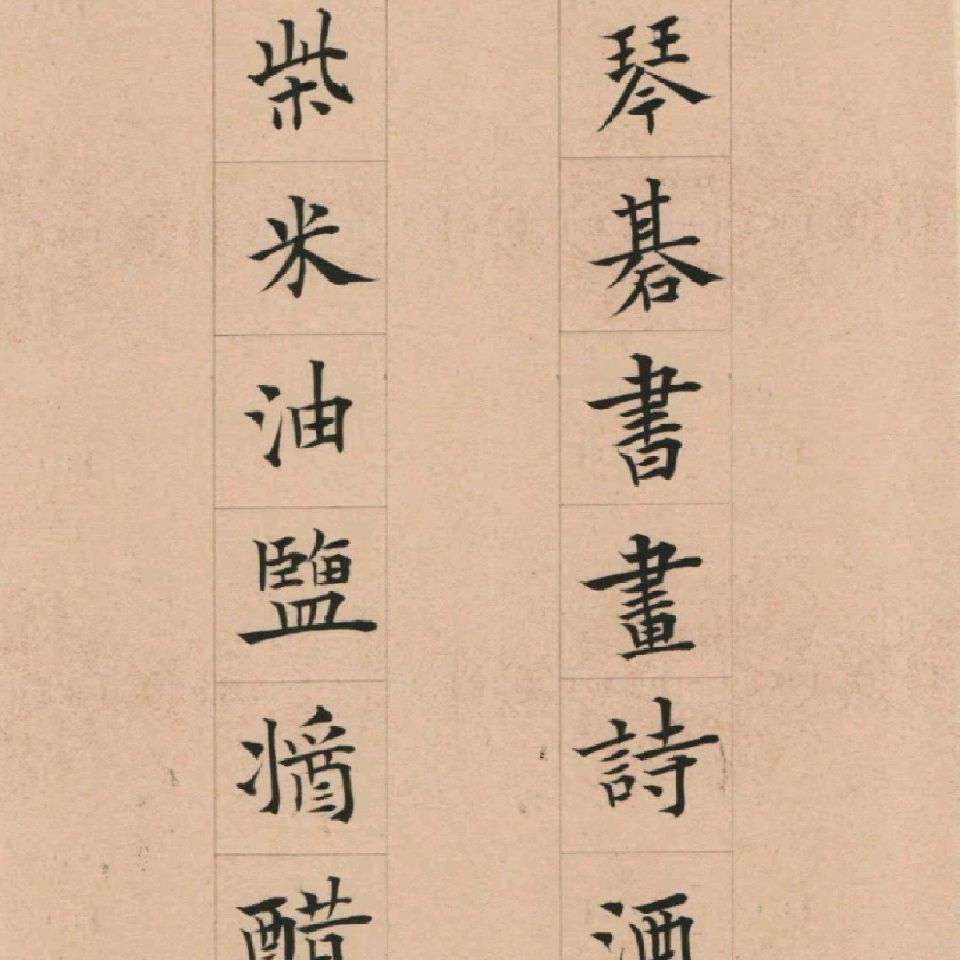 琴棊書畫詩酒
柴米油鹽醬醋